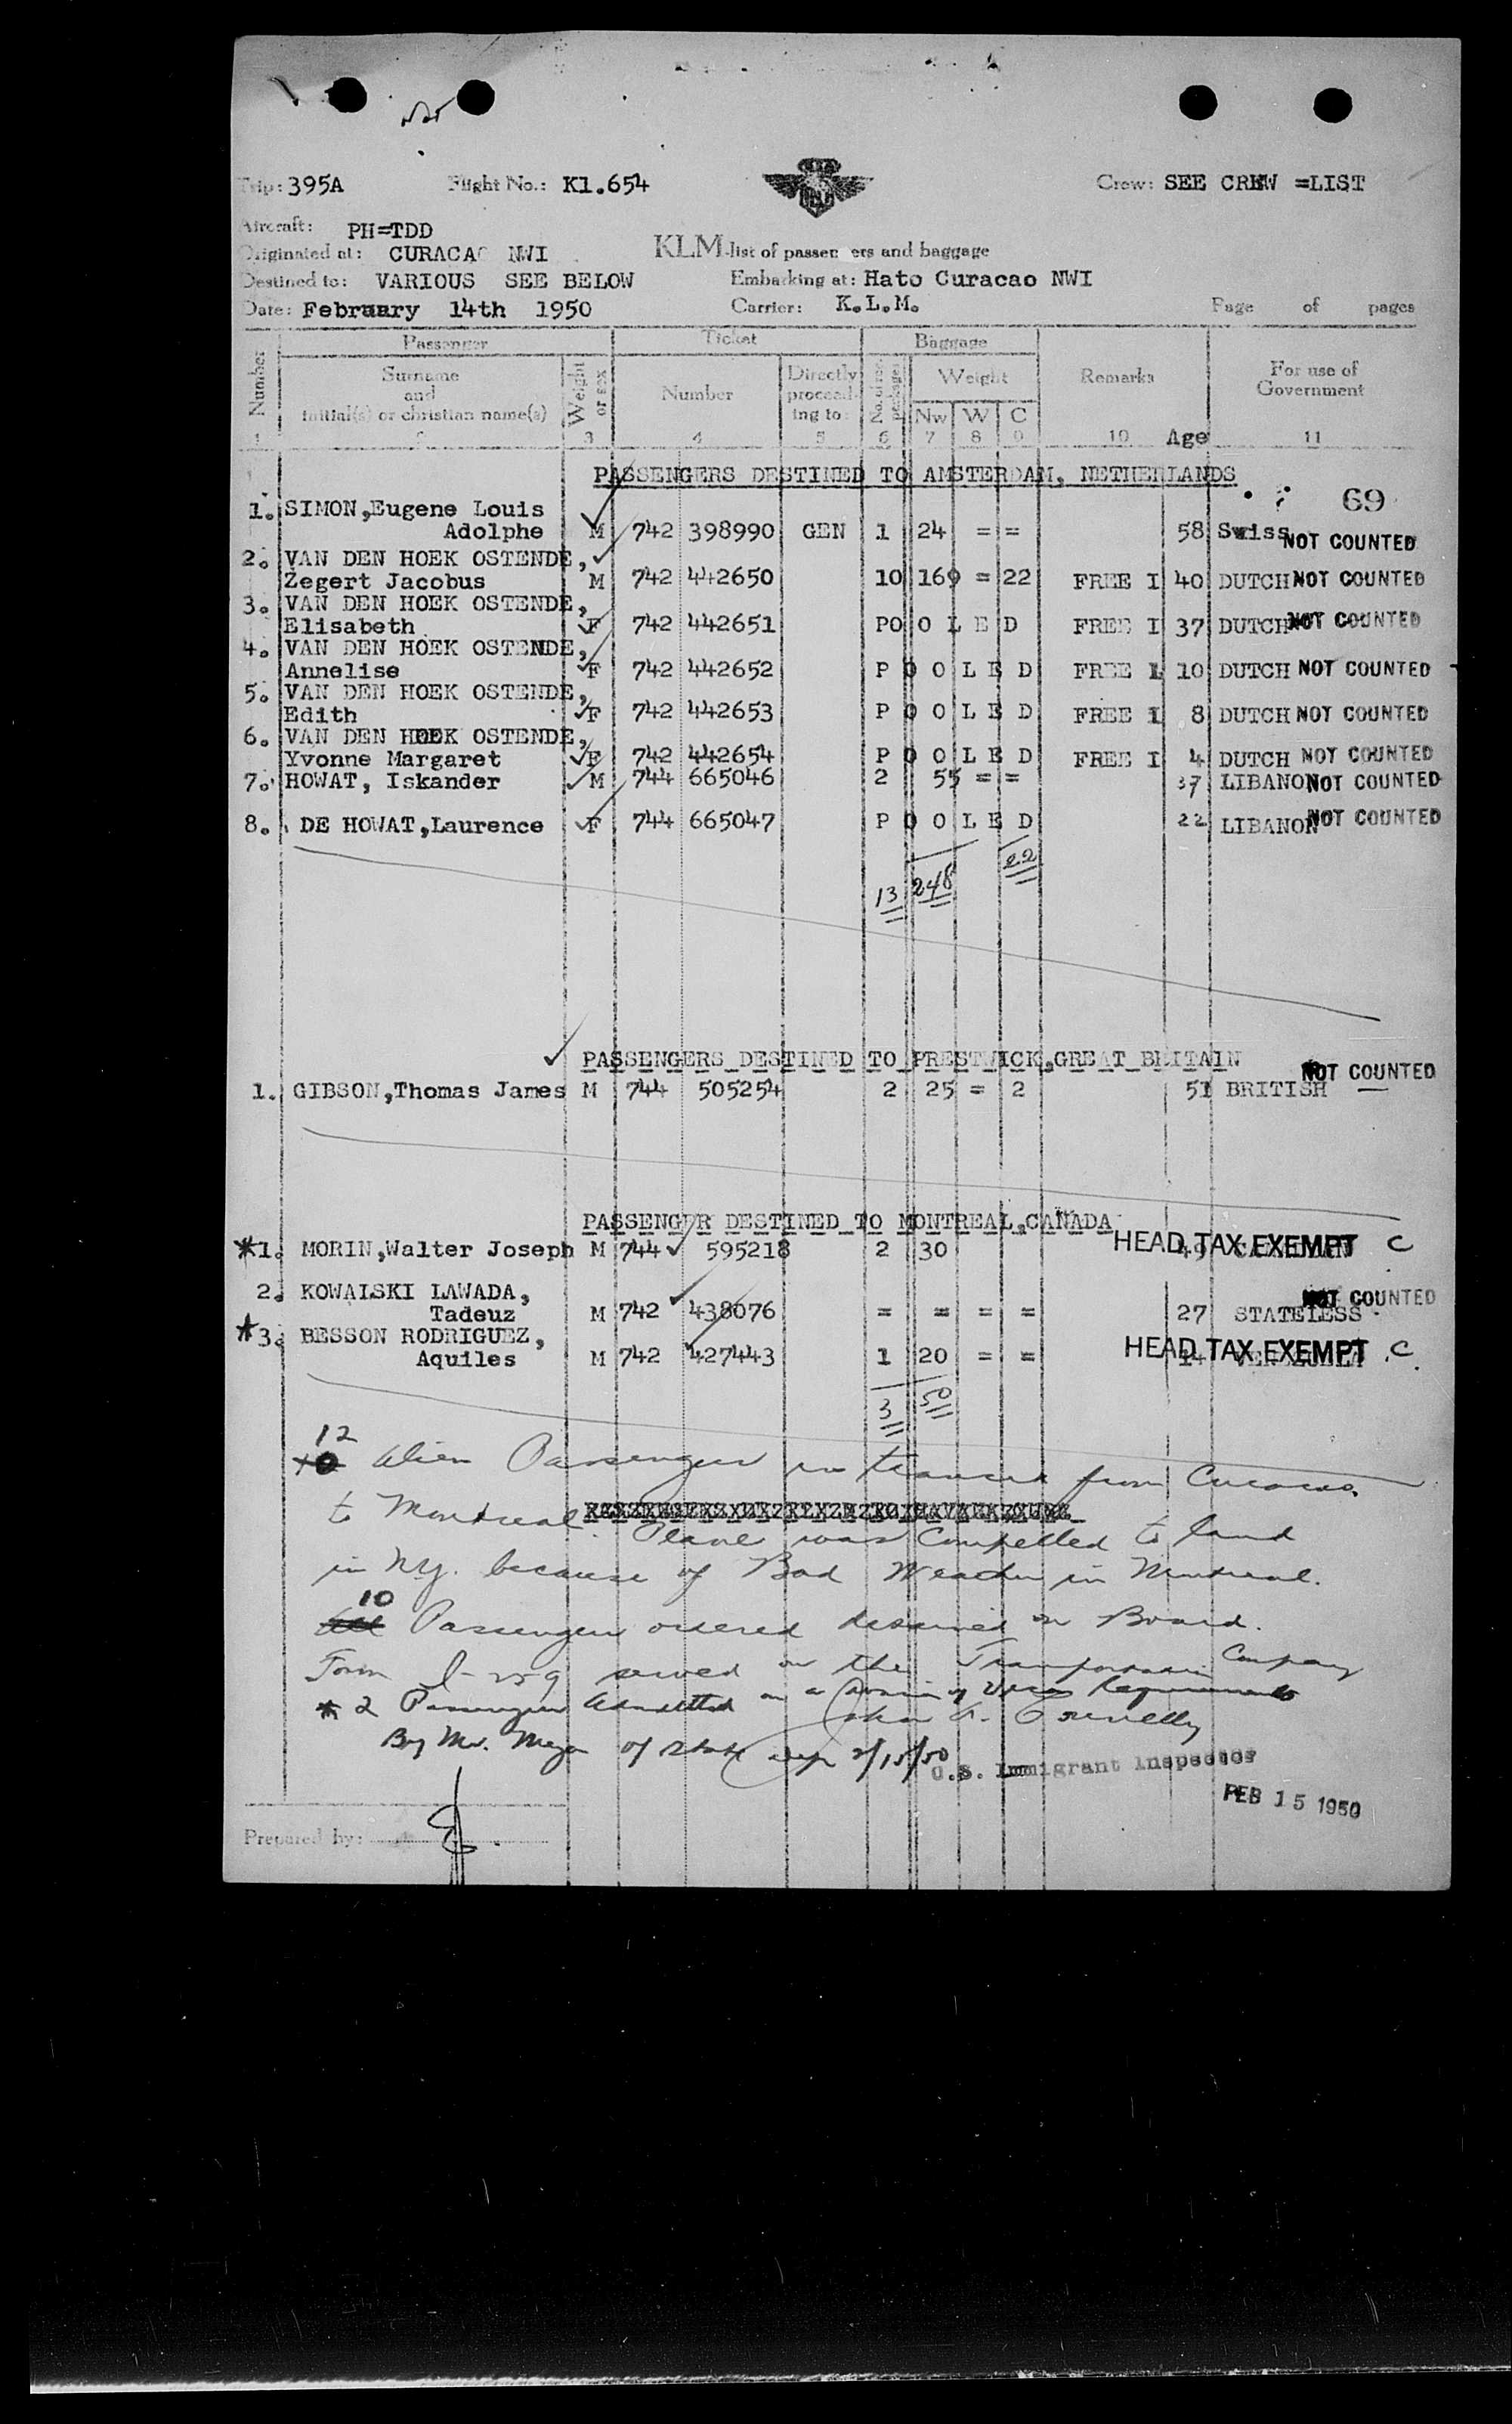 Trip: 395A Flight No.: Kl.654 Crew: SEE CREW =LIST
Aircraft: PH=TDD
Originated at: CURACAO NWI KLM-list of passengers and baggage
Destined to: VARIOUS SEE BELOW Embarking at: Hato Curacao NWI
Date: February 14th 1950 Carrier: K.L.M. Page of pages
Passenger Ticket Baggage
Number Surname and initial(s) or christian name(s) Weight or sex Number Directly proceeding to: No. of reg. packages Weight Nw W C Remarks For use of Government
1 2 3 4 5 6 7 8 9 10 Age 11
PASSENGERS DESTINED TO AMSTERDAM, NETHERLANDS
69
1. SIMON,Eugene Louis
Adolphe M 742 398990 GEN 1 24 = = 58 Swiss NOT COUNTED
2. VAN DEN HOEK OSTENDE,
Zegert Jacobus M 742 442650 10 169 = 22 FREE I 40 DUTCH NOT COUNTED
3. VAN DEN HOEK OSTENDE,
Elisabeth F 742 442651 POOLED FREE I 37 DUTCH NOT COUNTED
4. VAN DEN HOEK OSTENDE,
Annelise F 742 442652 P O O L E D FREE I 10 DUTCH NOT COUNTED
5. VAN DEN HOEK OSTENDE,
Edith F 742 442653 P O O L E D FREE I 8 DUTCH NOT COUNTED
6. VAN DEN HOEK OSTENDE,
Yvonne Margaret F 742 442654 P O O L E D FREE I 4 DUTCH NOT COUNTED
7. HOWAT, Iskander M 744 665046 2 55 = = 37 LIBANON NOT COUNTED
8. DE HOWAT,Laurence F 744 665047 P O O L E D 22 LIBANON NOT COUNTED
13 248 22
PASSENGERS DESTINED TO PRESTWICK,GREAT BRITAIN
1. GIBSON,Thomas James M 744 505254 2 25 = 2 51 BRITISH NOT COUNTED
PASSENGER DESTINED TO MONTREAL,CANADA
*1. MORIN,Walter Joseph M 744 595218 2 30 49 HEAD TAX EXEMPT C
2. KOWALSKI LAWADA,
Tadeuz M 742 438076 = = = = 27 STATELESS NOT COUNTED
*3. BESSON RODRIGUEZ,
Aquiles M 742 427443 1 20 = = 14 HEAD TAX EXEMPT C
3 50
12
Alien Passengers in transit from Curacao
to Montreal. Plane was Compelled to land
in N.Y. because of Bad Weather in Montreal.
10
Passengers ordered detained on Board.
Form I-259 served on the Transportation Company
* 2 Passengers Admitted on a Waiver of Visa Requirements
By Mr. of State Dep 2/15/50
U.S. Immigrant Inspector
FEB 15 1950
Prepared by: